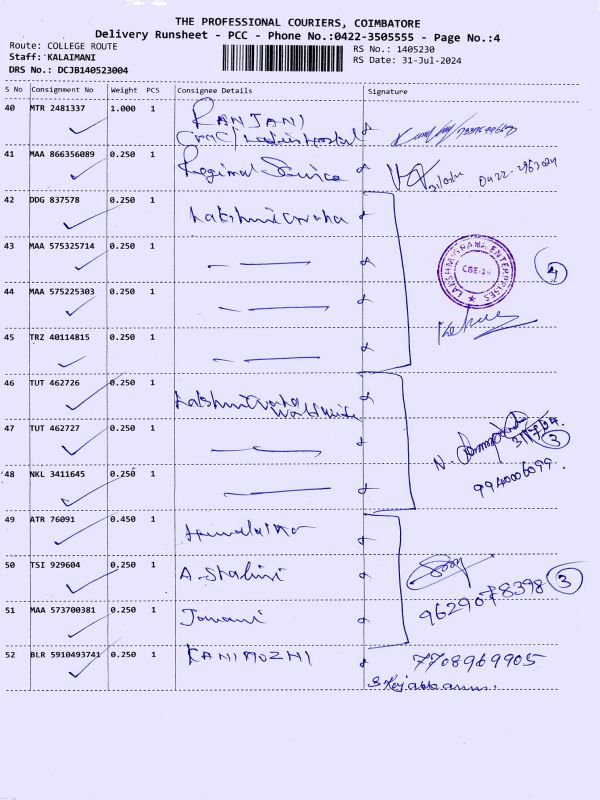 THE PROFESSIONAL COURIERS, COIMBATORE
Delivery Runsheet - PCC - Phone No.:0422-3505555 - Page No.:4
Route: COLLEGE ROUTE RS No.: 1405230
Staff: KALAIMANI RS Date: 31-Jul-2024
DRS No.: DCJB140523004
S No Consignment No Weight PCS Consignee Details Signature
40 MTR 2481337 1.000 1 RANJANI
41 MAA 866356089 0.250 1 Regimal Service 0422-2963024
42 DDG 837578 0.250 1 Lakshmi
43 MAA 575325714 0.250 1
LAKSHMIGRAHA ENTERPRISES
CBE-14
4
44 MAA 575225303 0.250 1
45 TRZ 40114815 0.250 1
46 TUT 462726 0.250 1 Worldwide
47 TUT 462727 0.250 1 3
48 NKL 3411645 0.250 1 9940006099.
49 ATR 76091 0.450 1
50 TSI 929604 0.250 1 A. Shalini 3
9629078398
51 MAA 573700381 0.250 1
52 BLR 5910493741 0.250 1 KANIMOZHI 7708969905